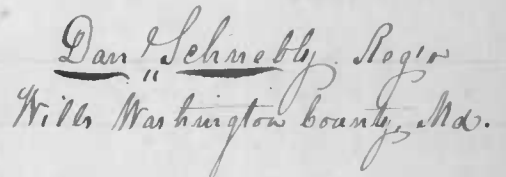 Danl Schnebly. Regr
Wills Washington County, Md.